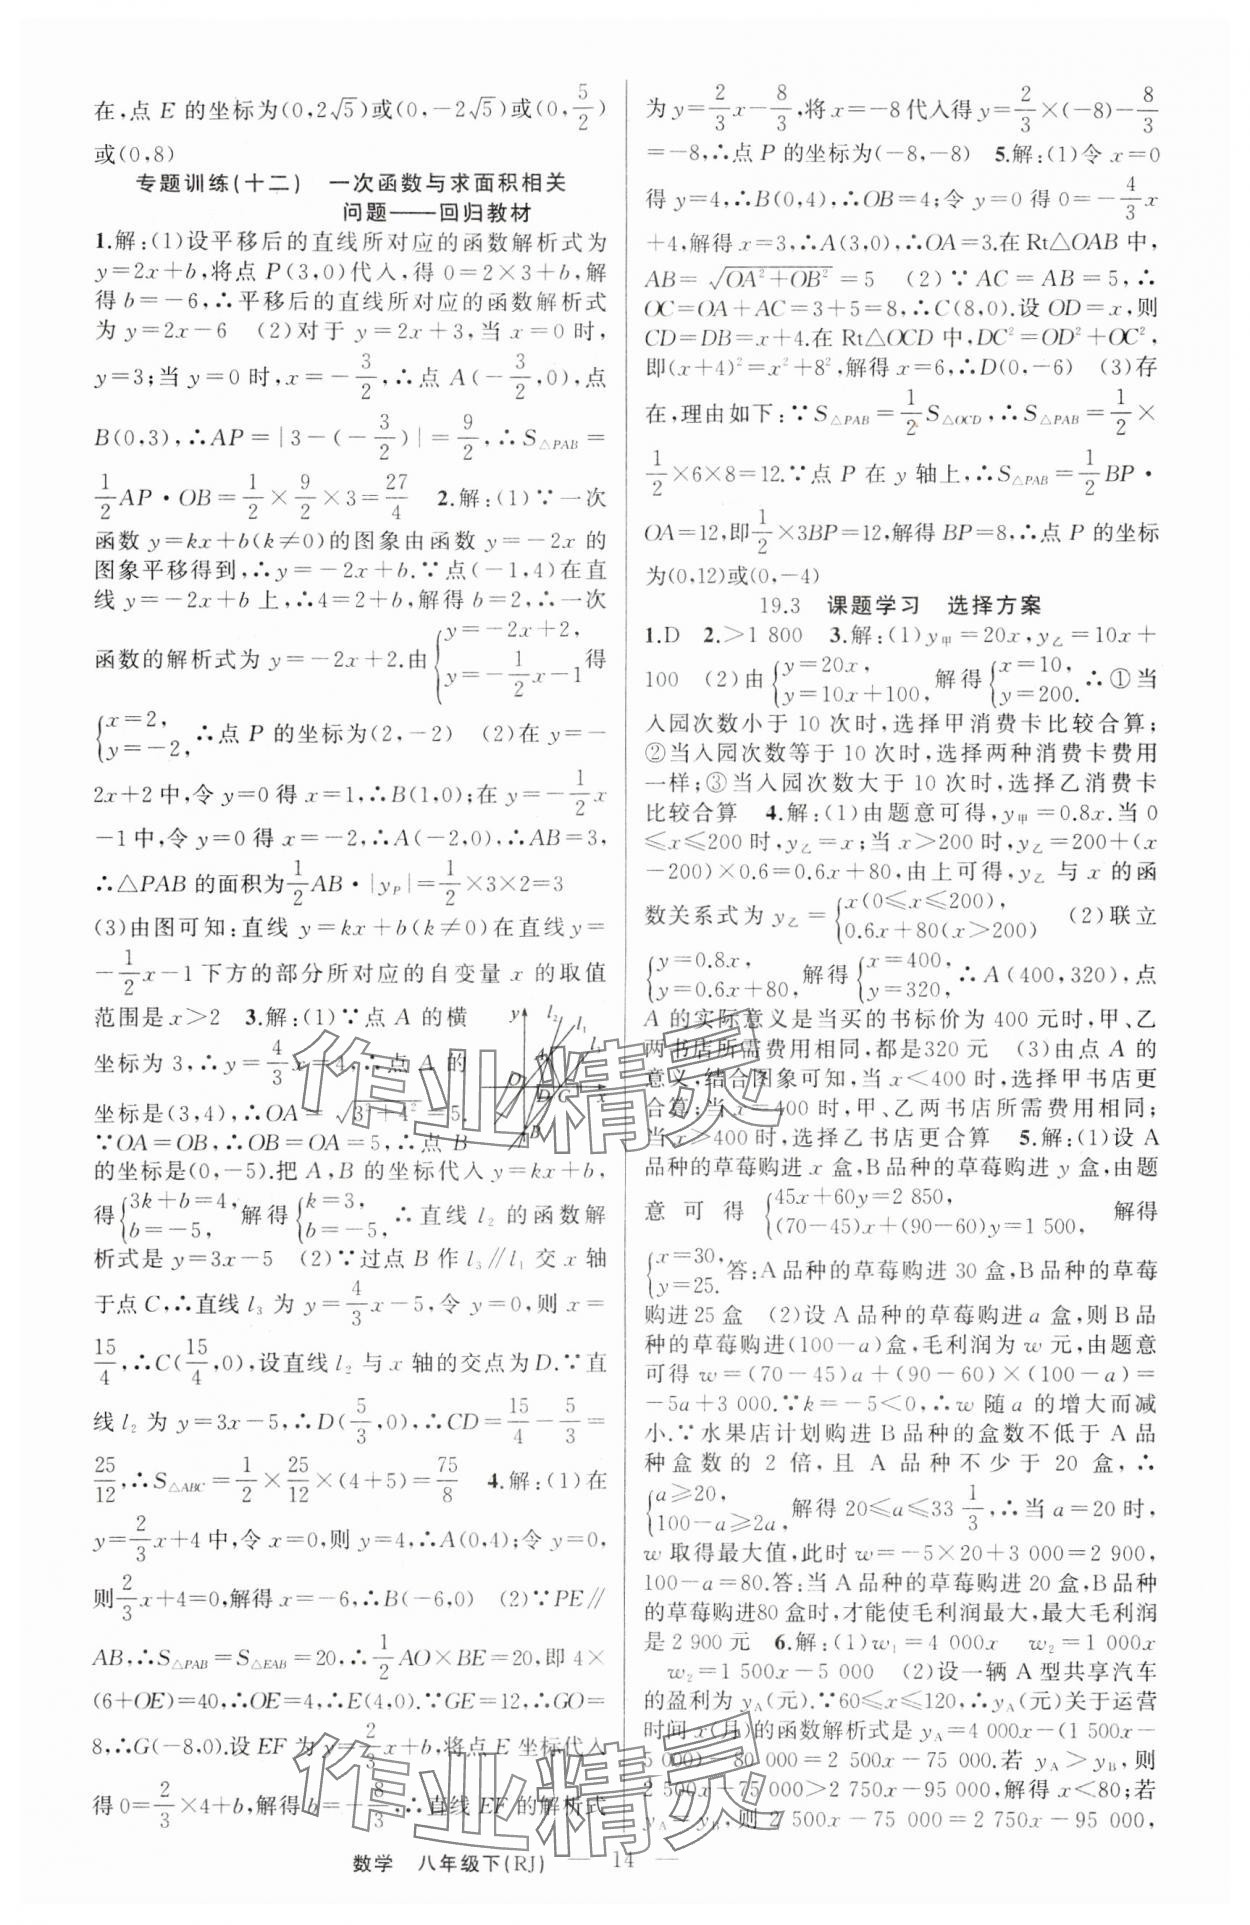 在,点 E 的坐标为(0,2√5)或(0,-2√5)或(0,5/2)
或(0,8)
专题训练(十二) 一次函数与求面积相关
问题——回归教材
1.解:(1)设平移后的直线所对应的函数解析式为
y=2x+b,将点 P(3,0)代入,得 0=2×3+b,解
得 b=-6,∴平移后的直线所对应的函数解析式
为 y=2x-6 (2)对于 y=2x+3,当 x=0 时,
y=3;当 y=0 时,x=-3/2,∴点 A(-3/2,0),点
B(0,3),∴AP=|3-(-3/2)|=9/2,∴S△PAB=
1/2AP·OB=1/2×9/2×3=27/4 2.解:(1)∵一次
函数 y=kx+b(k≠0)的图象由函数 y=-2x 的
图象平移得到,∴y=-2x+b.∵点(-1,4)在直
线 y=-2x+b 上,∴4=2+b,解得 b=2,∴一次
函数的解析式为 y=-2x+2.由{y=-2x+2, y=-1/2x-1得
{x=2, y=-2,∴点 P 的坐标为(2,-2) (2)在 y=-
2x+2 中,令 y=0 得 x=1,∴B(1,0);在 y=-1/2x
-1 中,令 y=0 得 x=-2,∴A(-2,0),∴AB=3,
∴△PAB 的面积为1/2AB·|yP|=1/2×3×2=3
(3)由图可知:直线 y=kx+b(k≠0)在直线 y=
-1/2x-1 下方的部分所对应的自变量 x 的取值
范围是 x>2 3.解:(1)∵点 A 的横
坐标为 3,∴y=4/3x=4,∴点 A 的
坐标是(3,4),∴OA=√3²+4²=5.
∵OA=OB,∴OB=OA=5,∴点 B
的坐标是(0,-5).把 A,B 的坐标代入 y=kx+b,
得{3k+b=4, b=-5,解得{k=3, b=-5,∴直线 l2 的函数解
析式是 y=3x-5 (2)∵过点 B 作 l3∥l1 交 x 轴
于点 C,∴直线 l3 为 y=4/3x-5,令 y=0,则 x=
15/4,∴C(15/4,0),设直线 l2 与 x 轴的交点为 D.∵直
线 l2 为 y=3x-5,∴D(5/3,0),∴CD=15/4-5/3=
25/12,∴S△ABC=1/2×25/12×(4+5)=75/8 4.解:(1)在
y=2/3x+4 中,令 x=0,则 y=4,∴A(0,4);令 y=0,
则2/3x+4=0,解得 x=-6,∴B(-6,0) (2)∵PE∥
AB,∴S△PAB=S△EAB=20,∴1/2AO×BE=20,即 4×
(6+OE)=40,∴OE=4,∴E(4,0).∵GE=12,∴GO=
8,∴G(-8,0).设 EF 为 y=2/3x+b,将点 E 坐标代入
得 0=2/3×4+b,解得 b=-8/3,∴直线 EF 的解析式
为 y=2/3x-8/3,将 x=-8 代入得 y=2/3×(-8)-8/3
=-8,∴点 P 的坐标为(-8,-8) 5.解:(1)令 x=0
得 y=4,∴B(0,4),∴OB=4;令 y=0 得 0=-4/3x
+4,解得 x=3,∴A(3,0),∴OA=3.在 Rt△OAB 中,
AB=√OA²+OB²=5 (2)∵AC=AB=5,∴
OC=OA+AC=3+5=8,∴C(8,0).设 OD=x,则
CD=DB=x+4.在 Rt△OCD 中,DC²=OD²+OC²,
即(x+4)²=x²+8²,解得 x=6,∴D(0,-6) (3)存
在,理由如下:∵S△PAB=1/2S△OCD,∴S△PAB=1/2×
1/2×6×8=12.∵点 P 在 y 轴上,∴S△PAB=1/2BP·
OA=12,即1/2×3BP=12,解得 BP=8,∴点 P 的坐标
为(0,12)或(0,-4)
19.3 课题学习 选择方案
1.D 2.>1 800 3.解:(1)y甲=20x,y乙=10x+
100 (2)由{y=20x, y=10x+100,解得{x=10, y=200.∴①当
入园次数小于 10 次时,选择甲消费卡比较合算;
②当入园次数等于 10 次时,选择两种消费卡费用
一样;③当入园次数大于 10 次时,选择乙消费卡
比较合算 4.解:(1)由题意可得,y甲=0.8x.当 0
≤x≤200 时,y乙=x;当 x>200 时,y乙=200+(x
-200)×0.6=0.6x+80,由上可得,y乙 与 x 的函
数关系式为 y乙={x(0≤x≤200), 0.6x+80(x>200) (2)联立
{y=0.8x, y=0.6x+80,解得{x=400, y=320,∴A(400,320),点
A 的实际意义是当买的书标价为 400 元时,甲、乙
两书店所需费用相同,都是320 元 (3)由点 A 的
意义,结合图象可知,当 x<400 时,选择甲书店更
合算;当 x=400 时,甲、乙两书店所需费用相同;
当 x>400 时,选择乙书店更合算 5.解:(1)设 A
品种的草莓购进 x 盒,B品种的草莓购进 y 盒,由题
意可得{45x+60y=2 850, (70-45)x+(90-60)y=1 500,解得
{x=30, y=25.答:A品种的草莓购进 30 盒,B品种的草莓
购进25 盒 (2)设 A 品种的草莓购进 a 盒,则 B 品
种的草莓购进(100-a)盒,毛利润为 w 元,由题意
可得 w=(70-45)a+(90-60)×(100-a)=
-5a+3 000.∵k=-5<0,∴w 随 a 的增大而减
小.∵水果店计划购进 B 品种的盒数不低于 A 品
种盒数的 2 倍,且 A 品种不少于 20 盒,∴
{a≥20, 100-a≥2a,解得 20≤a≤33 1/3,∴当 a=20 时,
w 取得最大值,此时 w=-5×20+3 000=2 900,
100-a=80.答:当 A品种的草莓购进 20 盒,B品种
的草莓购进80 盒时,才能使毛利润最大,最大毛利润
是 2 900 元 6.解:(1)w1=4 000x w2=1 000x
w2=1 500x-5 000 (2)设一辆 A 型共享汽车
的盈利为 yA(元).∵60≤x≤120,∴yA(元)关于运营
时间 x(月)的函数解析式是 yA=4 000x-(1 500x-
5 000)-80 000=2 500x-75 000.若 yA>yB,则
2 500x-75 000>2 750x-95 000,解得 x<80;若
yA=yB,则 2 500x-75 000=2 750x-95 000,
数学 八年级下(RJ) — 14 —
作业精灵
作业精灵